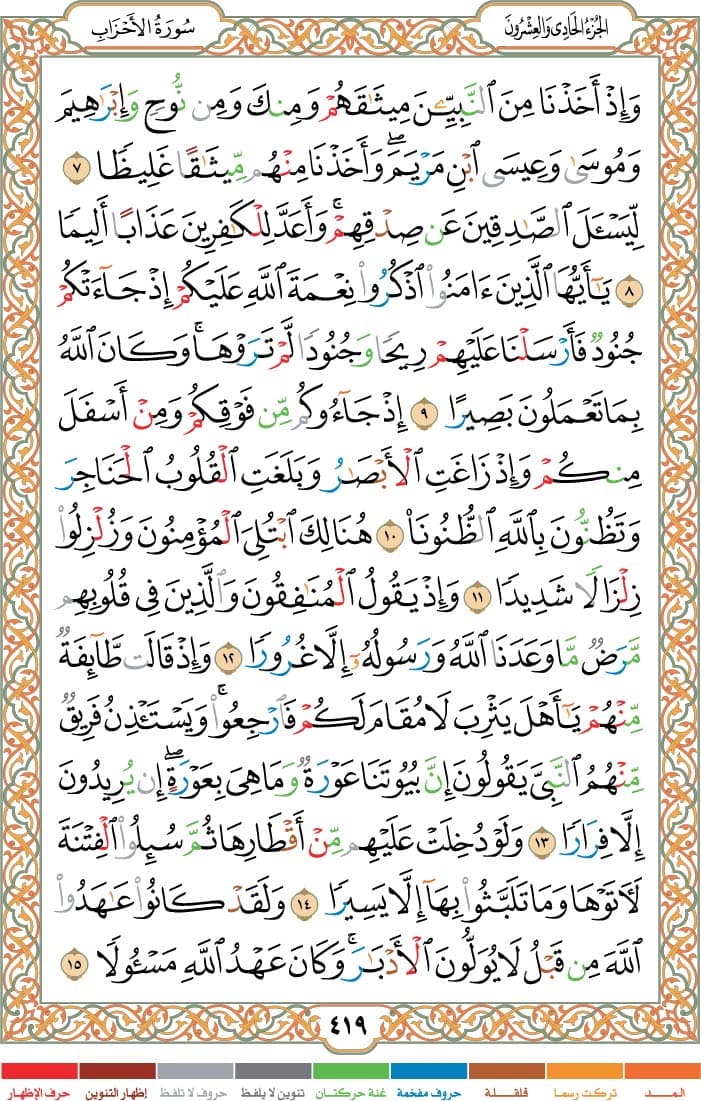 الجُزْءُ الحَادِي وَالعِشْرُونَ
سُورَةُ الأَحْزَابِ
وَإِذْ أَخَذْنَا مِنَ ٱلنَّبِيِّـۧنَ مِيثَٰقَهُمْ وَمِنكَ وَمِن نُّوحٍ وَإِبْرَٰهِيمَ
وَمُوسَىٰ وَعِيسَى ٱبْنِ مَرْيَمَ ۖ وَأَخَذْنَا مِنْهُم مِّيثَٰقًا غَلِيظًا ٧
لِّيَسْـَٔلَ ٱلصَّٰدِقِينَ عَن صِدْقِهِمْ ۚ وَأَعَدَّ لِلْكَٰفِرِينَ عَذَابًا أَلِيمًا
٨ يَٰٓأَيُّهَا ٱلَّذِينَ ءَامَنُوا۟ ٱذْكُرُوا۟ نِعْمَةَ ٱللَّهِ عَلَيْكُمْ إِذْ جَآءَتْكُمْ
جُنُودٌ فَأَرْسَلْنَا عَلَيْهِمْ رِيحًا وَجُنُودًا لَّمْ تَرَوْهَا ۚ وَكَانَ ٱللَّهُ
بِمَا تَعْمَلُونَ بَصِيرًا ٩ إِذْ جَآءُوكُم مِّن فَوْقِكُمْ وَمِنْ أَسْفَلَ
مِنكُمْ وَإِذْ زَاغَتِ ٱلْأَبْصَٰرُ وَبَلَغَتِ ٱلْقُلُوبُ ٱلْحَنَاجِرَ
وَتَظُنُّونَ بِٱللَّهِ ٱلظُّنُونَا۠ ١٠ هُنَالِكَ ٱبْتُلِىَ ٱلْمُؤْمِنُونَ وَزُلْزِلُوا۟
زِلْزَالًا شَدِيدًا ١١ وَإِذْ يَقُولُ ٱلْمُنَٰفِقُونَ وَٱلَّذِينَ فِى قُلُوبِهِم
مَّرَضٌ مَّا وَعَدَنَا ٱللَّهُ وَرَسُولُهُۥٓ إِلَّا غُرُورًا ١٢ وَإِذْ قَالَت طَّآئِفَةٌ
مِّنْهُمْ يَٰٓأَهْلَ يَثْرِبَ لَا مُقَامَ لَكُمْ فَٱرْجِعُوا۟ ۚ وَيَسْتَـْٔذِنُ فَرِيقٌ
مِّنْهُمُ ٱلنَّبِىَّ يَقُولُونَ إِنَّ بُيُوتَنَا عَوْرَةٌ وَمَا هِىَ بِعَوْرَةٍ ۖ إِن يُرِيدُونَ
إِلَّا فِرَارًا ١٣ وَلَوْ دُخِلَتْ عَلَيْهِم مِّنْ أَقْطَارِهَا ثُمَّ سُئِلُوا۟ ٱلْفِتْنَةَ
لَءَاتَوْهَا وَمَا تَلَبَّثُوا۟ بِهَآ إِلَّا يَسِيرًا ١٤ وَلَقَدْ كَانُوا۟ عَٰهَدُوا۟
ٱللَّهَ مِن قَبْلُ لَا يُوَلُّونَ ٱلْأَدْبَٰرَ ۚ وَكَانَ عَهْدُ ٱللَّهِ مَسْـُٔولًا ١٥
٤١٩
المـــد تركت رسما قلقـلة حروف مفخمة غنة حركتان تنوين لا يلفظ حروف لا تلفظ إظهار التنوين حرف الإظهار